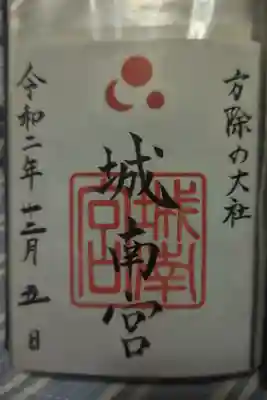 方除の大社
城南宮
城南宮
令和二年十二月五日